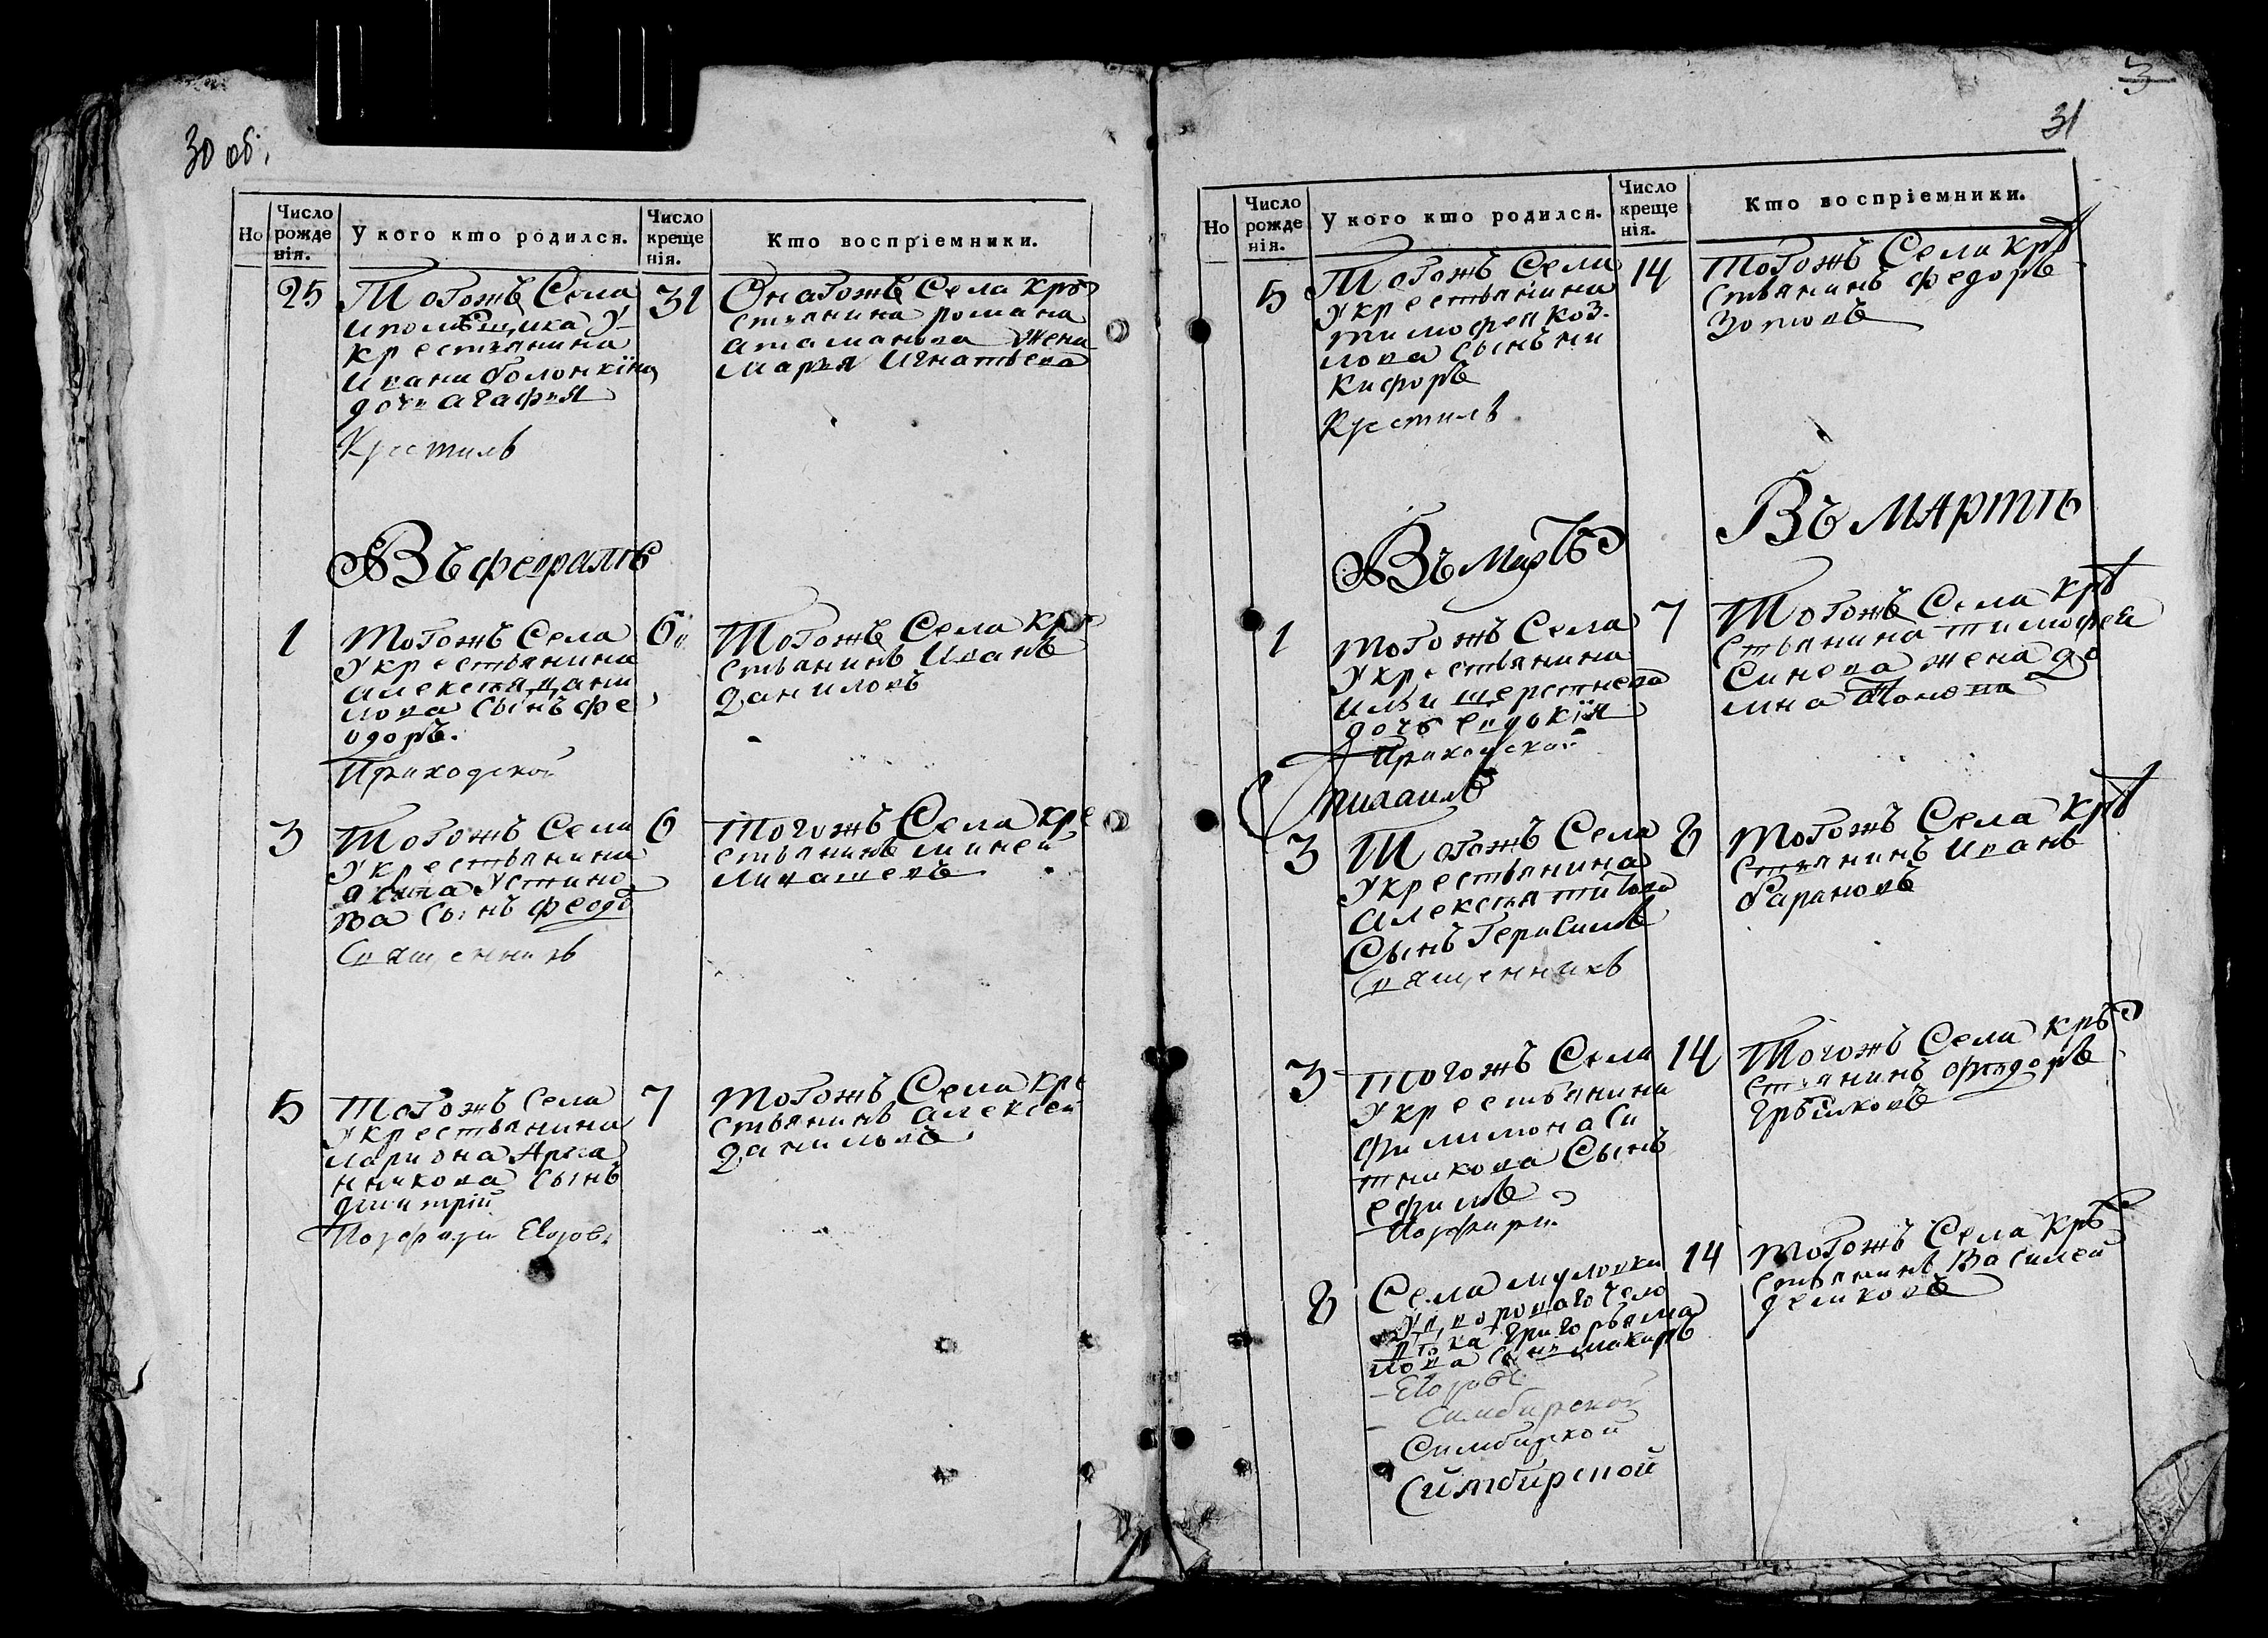 30 об.
Но
Число рожде нія.
У кого кто родился.
Число креще нія.
Кто воспріемники.
25
Тогожъ Села
ипомѣщика У
крестьянина
Ивана болонкина
дочь агафия
Крестилъ
31
Онагожъ Села кре
стьянина романа
атаманова жена
марья Игнатьева
Въ февралѣ
1
Тогожъ Села
Укрестьянина
алексѣя дани
лова Сынъ фе
одоръ.
Приходской
6
Тогожъ Села кре
стьянинъ Иванъ
Даниловъ
3
Тогожъ Села
Укрестьянина
Устино
ва Сынъ феодо
Священникъ
6
Тогожъ Села кре
стьянинъ миней
ливашевъ
5
Тогожъ Села
Укрестьянина
лариона
Сынъ
дмитрій
Порфири Егоров
7
Тогожъ Села кре
стьянинъ алексей
Даниловъ
3
31
Но
Число рожде нія.
У кого кто родился.
Число креще нія.
Кто воспріемники.
5
Тогожъ Села
Укрестьянина
тимофея коз
лова Сынъ ни
кифоръ
Крестилъ
14
Тогожъ Села кре
стьянинъ федоръ
Зотовъ
Въ мартѣ
Въ Мартѣ
1
Тогожъ Села
Укрестьянина
ильи шерстнева
дочь евдокія
Приходской
михаилъ
7
Тогожъ Села кре
стьянина тимофея
Синева жена до
мна
3
Тогожъ Села
Укрестьянина
алексѣя титова
Сынъ Герасимъ
Священникъ
8
Тогожъ Села кре
стьянинъ Иванъ
барановъ
3
Тогожъ Села
Укрестьянина
филимона Си
тникова Сынъ
ефимъ
Порфири
14
Тогожъ Села кре
стьянинъ федоръ
8
Села муловки
Удвороваго чело
вѣка григорья ма
лова Сынъ макаръ
Егоровъ
Симбирской
Симбирской
Симбирской
14
Тогожъ Села кре
стьянинъ Василей
демковъ